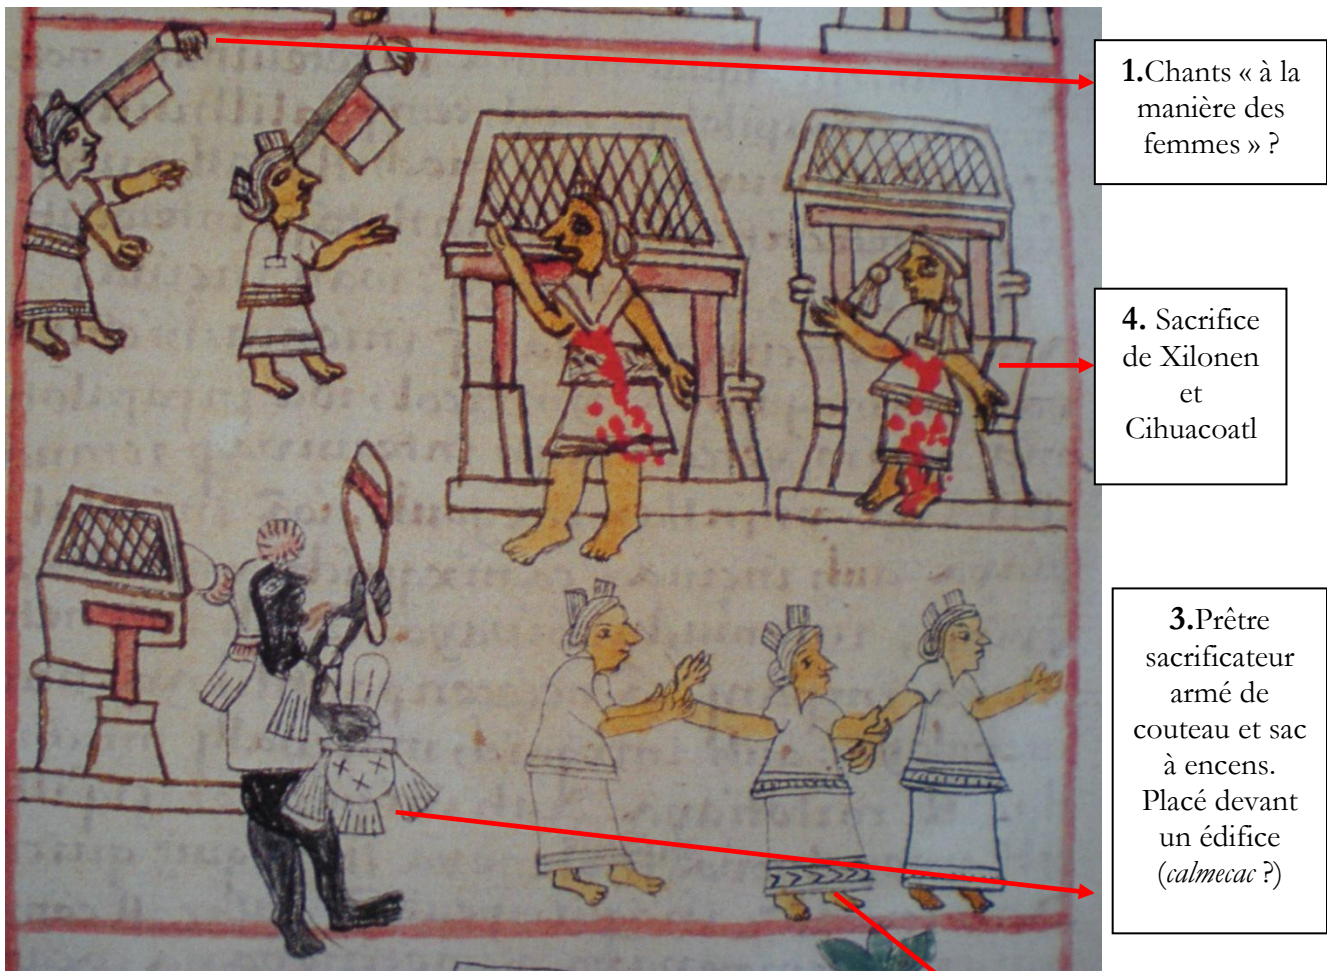 1.Chants « à la
manière des
femmes » ?
4. Sacrifice
de Xilonen
et
Cihuacoatl
3.Prêtre
sacrificateur
armé de
couteau et sac
à encens.
Placé devant
un édifice
(calmecac ?)